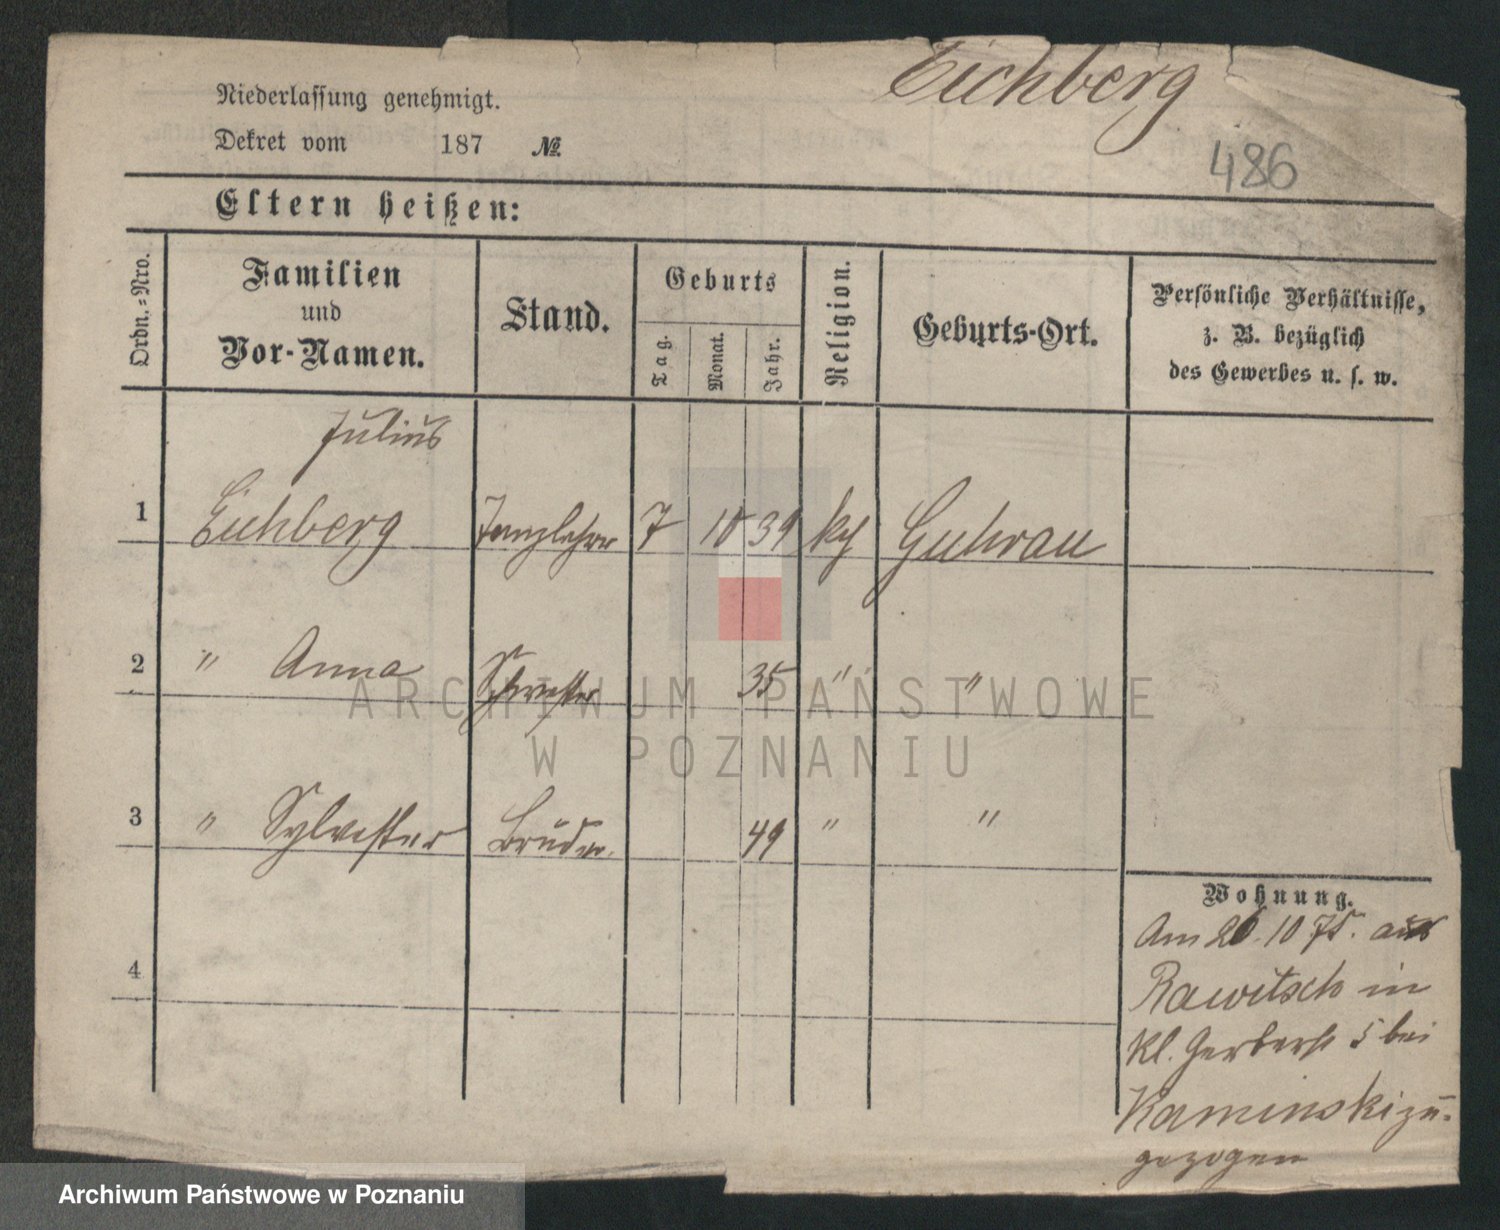 Eichberg
Niederlassung genehmigt.
Dekret vom 187 №
486
Eltern heißen:
Ordn.=Nro.
Familien
und
Vor-Namen.
Stand.
Geburts
Tag.
Monat.
Jahr.
Religion.
Geburts-Ort.
Persönliche Verhältnisse,
z. B. bezüglich
des Gewerbes u. s. w.
Julius
1 Eichberg Tanzlehrer 7 10 39 Guhrau
2 " Anna Schwester 35 " "
3 " Sylvester Bruder. 49 " "
4
Wohnung.
Am 26. 10 75. aus
Rawitsch in
Kl. Gerberst 5 bei
Kaminski zu-
gezogen
ARCHIWUM PAŃSTWOWE
W POZNANIU
Archiwum Państwowe w Poznaniu